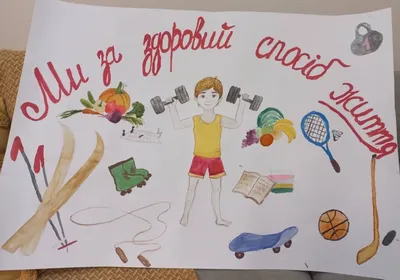 Ми за здоровий спосіб життя
1